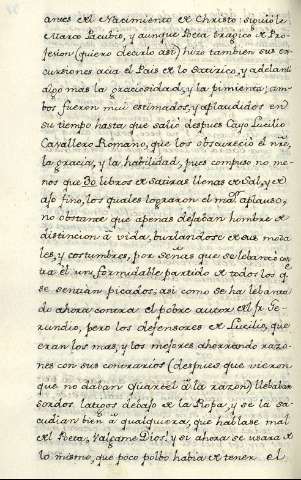 antes del Nacimiento de Christo: siguióle
Marco Pacubio, y aunque Poeta tragico de Pro-
fesion (quiero decirlo asi) hizo tambien sus ex-
cursiones acia el Pais de lo Satirico, y adelantó
algo mas la graciosidad, y la pimienta; am-
bos fueron mui estimados, y aplaudidos en
su tiempo hasta que salió despues Cayo Lucilio
Cavallero Romano, que los obscureció el
la gracia, y la habilidad, pues compuso no me-
nos que 30 libros de Satiras llenas de Sal, y de
aso fino, los quales lograron el maior aplauso,
no obstante que apenas dejaban hombre de
distincion à vida, burlandose de sus moda-
les, y costumbres, por señas que se lebantó con-
tra él un formidable partido de todos los q.e
se sentian picados, asi como se ha lebanta-
do ahora contra el pobre autor del fr. Ge-
rundio, pero los defensores de Lucilio, que
eran los mas, y los mejores ahorrando razo-
nes con sus contrarios (despues que vieron
que no daban quartel à la razon) llebaban
sordos latigos debajo de la Ropa, y se la sa-
cudian bien à qualquiera, que hablase mal
del Poeta, Valgame Dios! y si ahora se usara de
lo mismo, que poco polbo habia de tener el